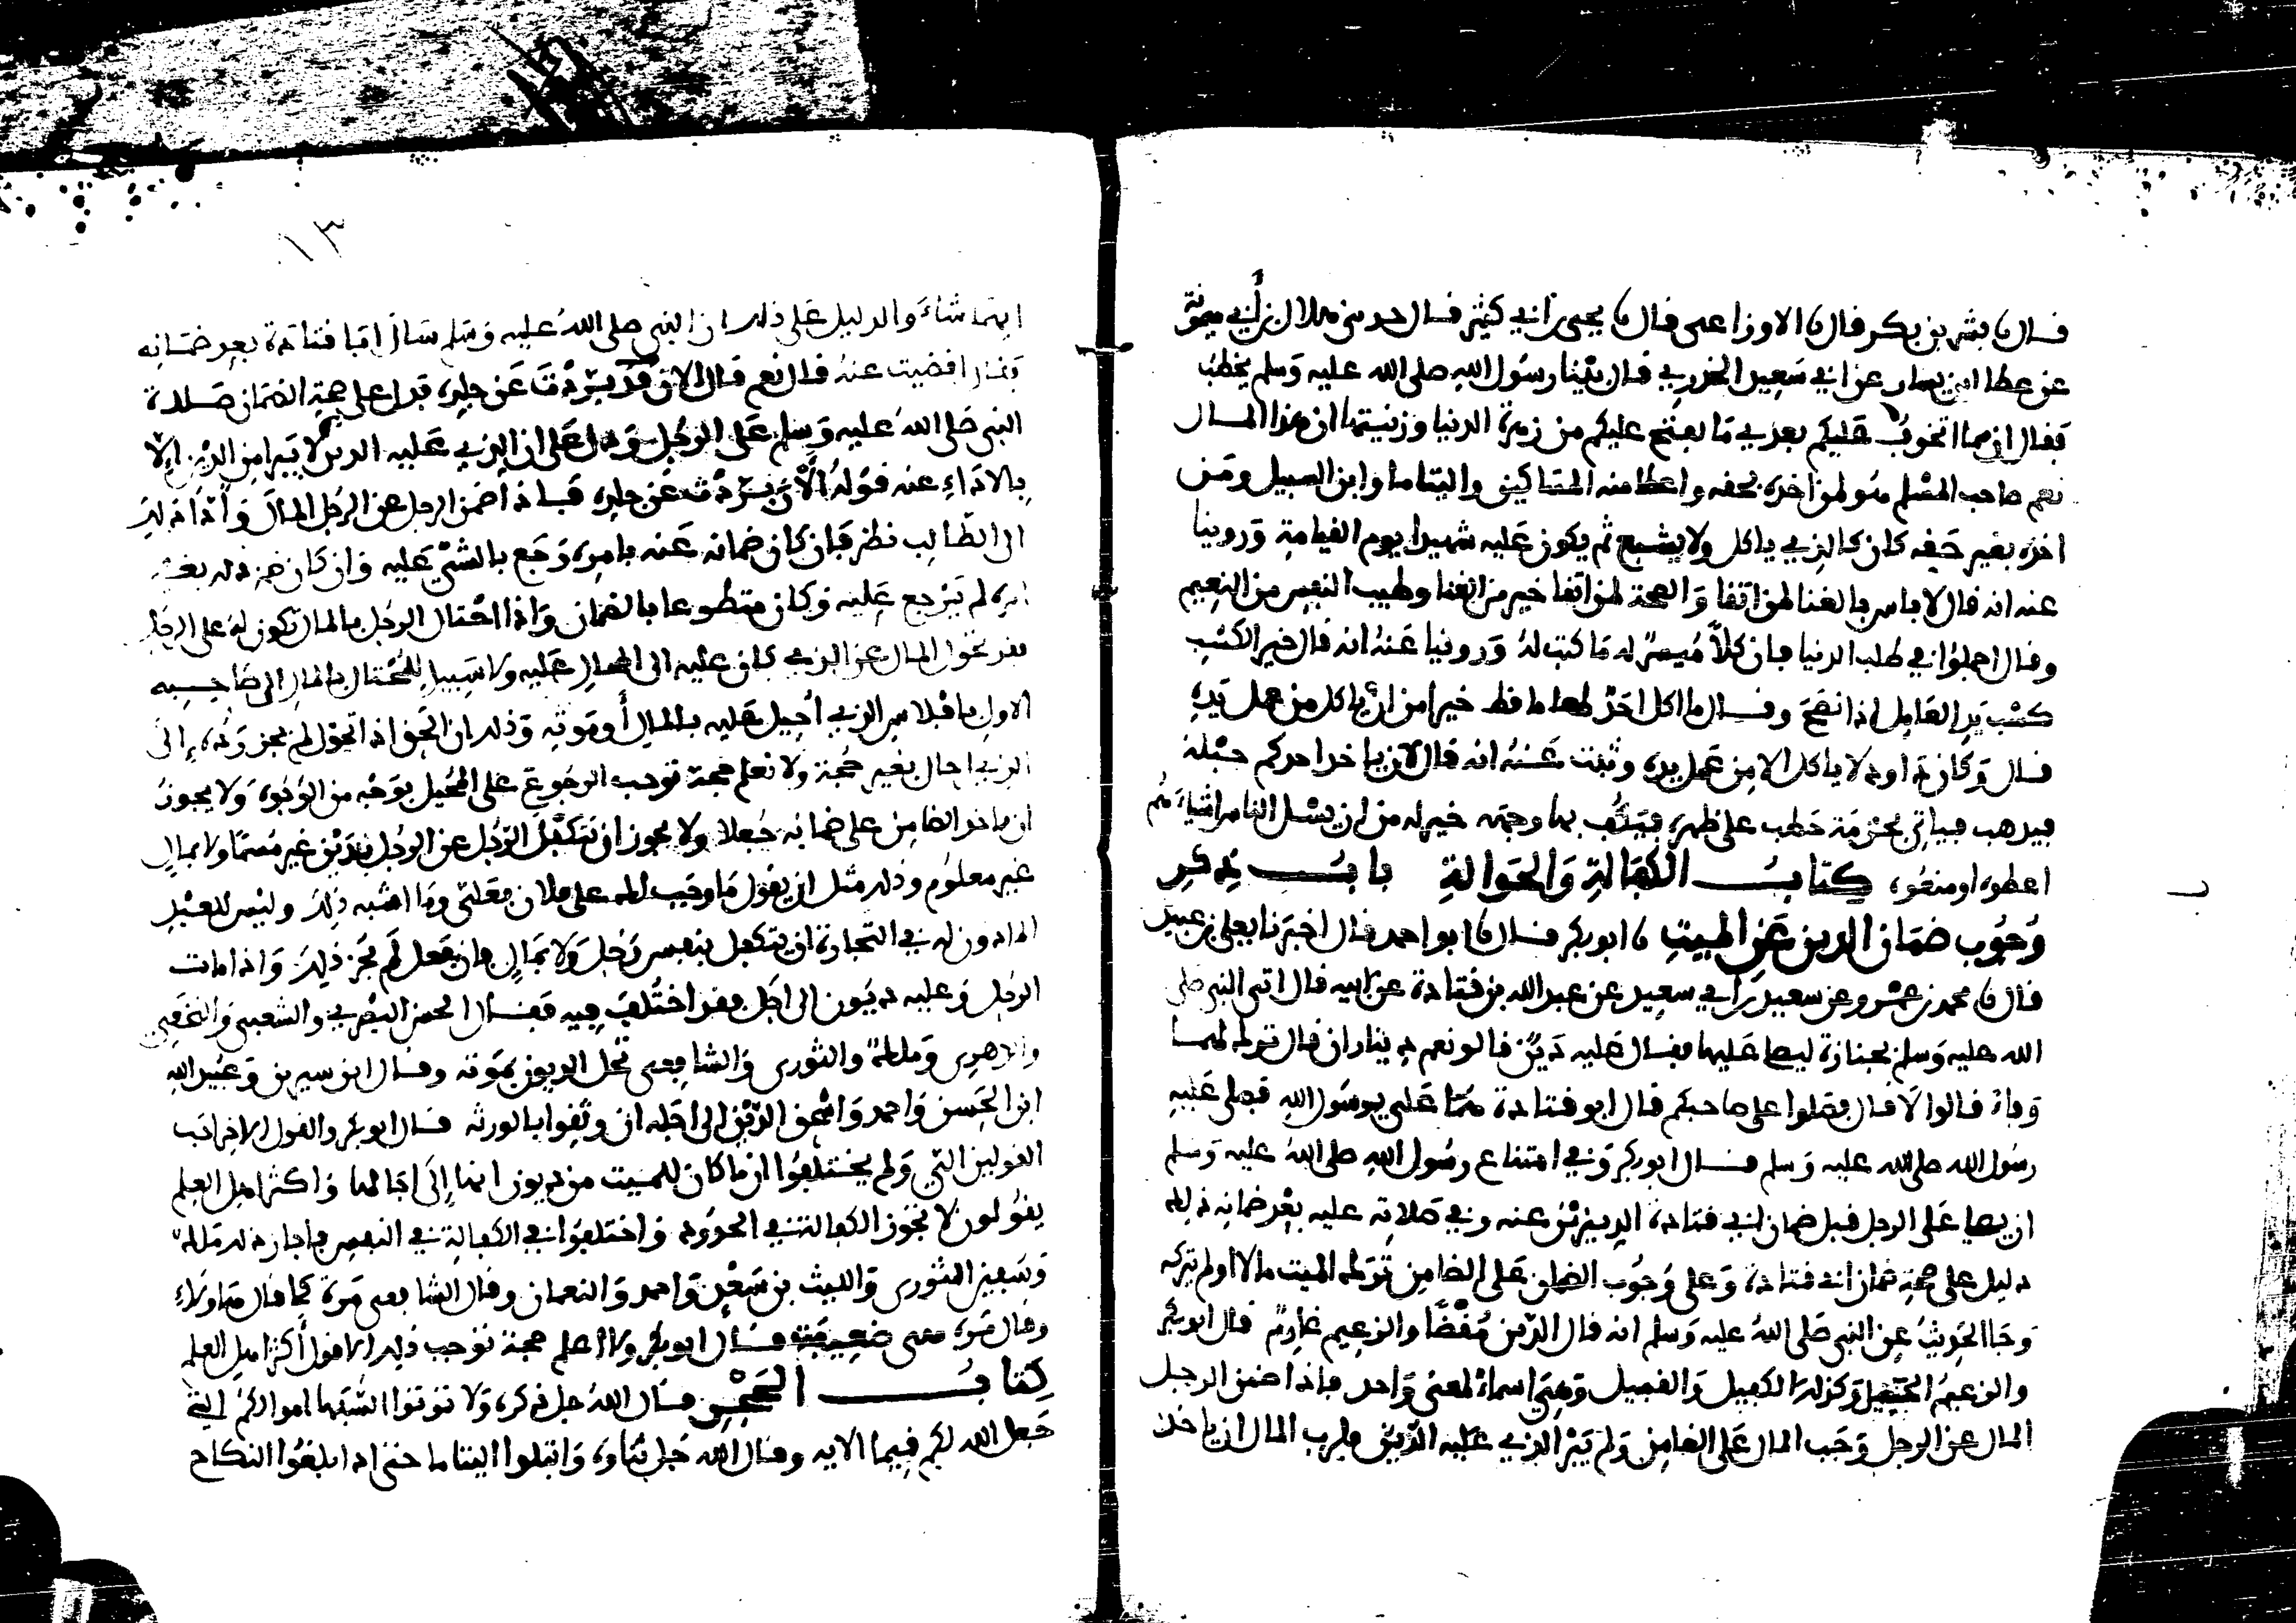 قال نا بشر بن بكر قال نا الاوزاعى قال نا يحيى بن ابي كثير قال حدثنى هلال بن أبي ميمونة
عن عطا ابن يسار عن ابي سعيد الخدري قال بينا رسول الله صلى الله عليه وسلم يخطب
فقال ان مما اتخوف عليكم بعدي ما يفتح عليكم من زهرة الدنيا وزينتها ان هذا المال
نعم صاحب المسلم هو لمن اخذه بحقه واعطا منه المساكين واليتاما وابن السبيل ومن
اخذه بغير حقه كان كالذي ياكل ولا يشبع ثم يكون عليه شهيدا يوم القيامة وروينا
عنه انه قال لا باس بالغنا لمن اتقا والصحة لمن اتقا خير من الغنا وطيب النفس من النعيم
وقال اجملوا في طلب الدنيا فان كلا ميسر له ما كتب له وروينا عنه انه قال خير الكسب
كسب يد العامل اذا نصح وقال ما اكل احد طعاما قط خيرا من ان ياكل من عمل يده
قال وكان داود لا ياكل الا من عمل يده وثبت عنه انه قال لان ياخذ احدكم حبله
فيذهب فياتي بحزمة حطب على ظهره فيكف بها وجهه خير له من ان يسل الناس اشياءهم
اعطوه او منعوه كتاب الكفالة والحوالة باب ذكر
وجوب ضمان الدين عن الميت نا ابو بكر قال نا ابو احمد قال اخبرنا يعلى بن عبيد
قال نا محمد بن عمرو عن سعيد بن أبي سعيد عن عبد الله بن قتادة عن ابيه قال اتى النبي صلى
الله عليه وسلم بجنازة ليصلى عليها فقال عليه دين قالو نعم ديناران قال ترك لهما
وفاء قالوا لا قال فصلوا على صاحبكم قال ابو قتادة هما على يرسول الله فصلى عليه
رسول الله صلى الله عليه وسلم قال ابو بكر وفي امتناع رسول الله صلى الله عليه وسلم
ان يصلى على الرجل قبل ضمان ابي قتادة الدينارين عنه وفي صلاته عليه بعد ضمانه ذلك
دليل على صحة ضمان ابي قتادة وعلى وجوب الضمان على الضامن ترك الميت مالا او لم يتركه
وجا الحديث عن النبي صلى الله عليه وسلم انه قال الدين مقضا والزعيم غارم قال ابو بكر
والزعيم الحميل وكذلك الكفيل والقبيل وهي اسماء لمعنى واحد فاذا ضمن الرجل
المال عن الرجل وجب المال على الضامن ولم يبر الذي عليه الدين فلرب المال ان ياخذ
١٣
ايهما شاء والدليل على ذلك ان النبي صلى الله عليه وسلم سال ابا قتادة بعد ضمانه
فقال اقضيت عنه قال نعم قال الان قد بردت عن جلده فدل على صحة الضمان صلاة
النبي صلى الله عليه وسلم على الرجل ودل على ان الذي عليه الدين لا يبرا من الدين الا
بالاداء عنه قوله الان بردت عن جلده فاذا ضمن الرجل عن الرجل المال وادا ذلك
الى الطالب نظر فان كان ضمانه عنه بامره رجع بالشي عليه وان كان ضمن ذلك بغير
امره لم يرجع عليه وكان متطوعا بالضمان واذا احتال الرجل بالمال تكون له على الرجل
فقد تحول المال عن الذي كان عليه الى المحال عليه ولا سبيل للمحتال بالمال الى صاحبه
الاول بافلاس الذي أحيل عليه بالمال أو موته وذلك ان الحق اذا تحول لم يجز رده إلى
الذي احال بغير حجة ولا نعلم حجة توجب الرجوع على المحيل بوجه من الوجوه ولا يجوز
ان ياخذ الضامن على ضمانه جعلا ولا يجوز ان يتكفل الرجل عن الرجل بدين غير مسما ولا بمال
غير معلوم وذلك مثل ان يقول ما وجب لك على فلان فعلي وما اشبه ذلك وليس للعبد
الماذون له في التجارة ان يتكفل بنفس رجل ولا بمال فان فعل لم يجز ذلك واذا مات
الرجل وعليه ديون الى اجل فقد اختلف فيه فقال الحسن البصري والشعبي والنخعي
والزهري وملك والثوري والشافعى تحل الديون بموته وقال ابن سيرين وعبيد الله
ابن الحسن واحمد واسحق الدين الى اجله ان وثقوا بالورثة قال ابو بكر والقول الاخر احب
القولين الي ولم يختلفوا ان ما كان للميت من ديون انها إلى اجالها واكثر اهل العلم
يقولون لا تجوز الكفالة في الحدود واختلفوا في الكفالة في النفس فاجاز ذلك ملك
وسفين الثوري والليث بن سعد واحمد والنعمان وقال الشافعى مرة كما قال هاولاء
وقال مرة هي ضعيفة قال ابو بكر ولا اعلم حجة توجب ذلك الا قول أكثر اهل العلم
كتاب الحجر قال الله جل ذكره ولا توتوا السفها اموالكم التي
جعل الله لكم قيما الايه وقال الله جل ثناوه وابتلوا اليتاما حتى اذا بلغوا النكاح